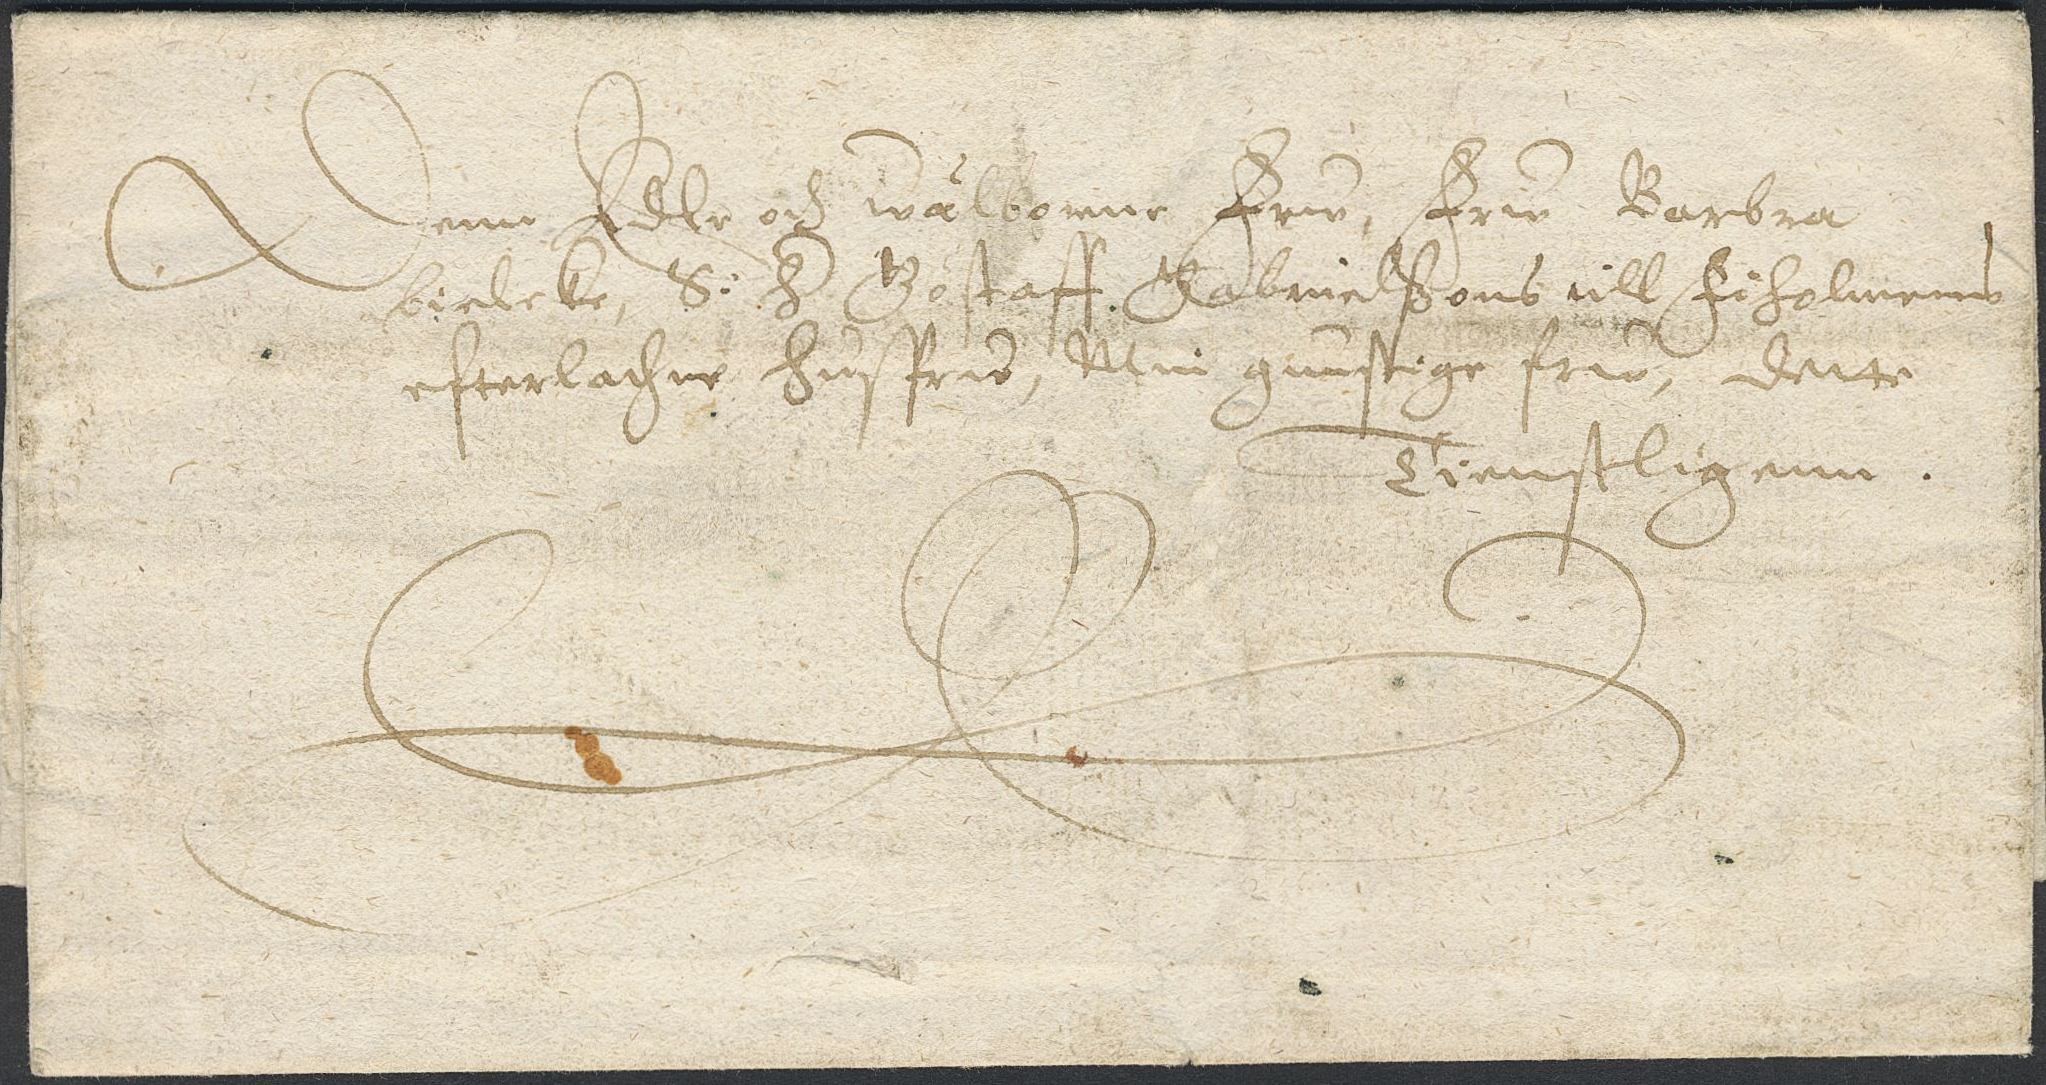 Denn Edle och wälborne Frw, Frw Barbra
bielcke, S: H Göstaff Gabrielsons till Fiholmenns
efterlachne husfrw, Min gunstige frw, dette
Tienstligenn.